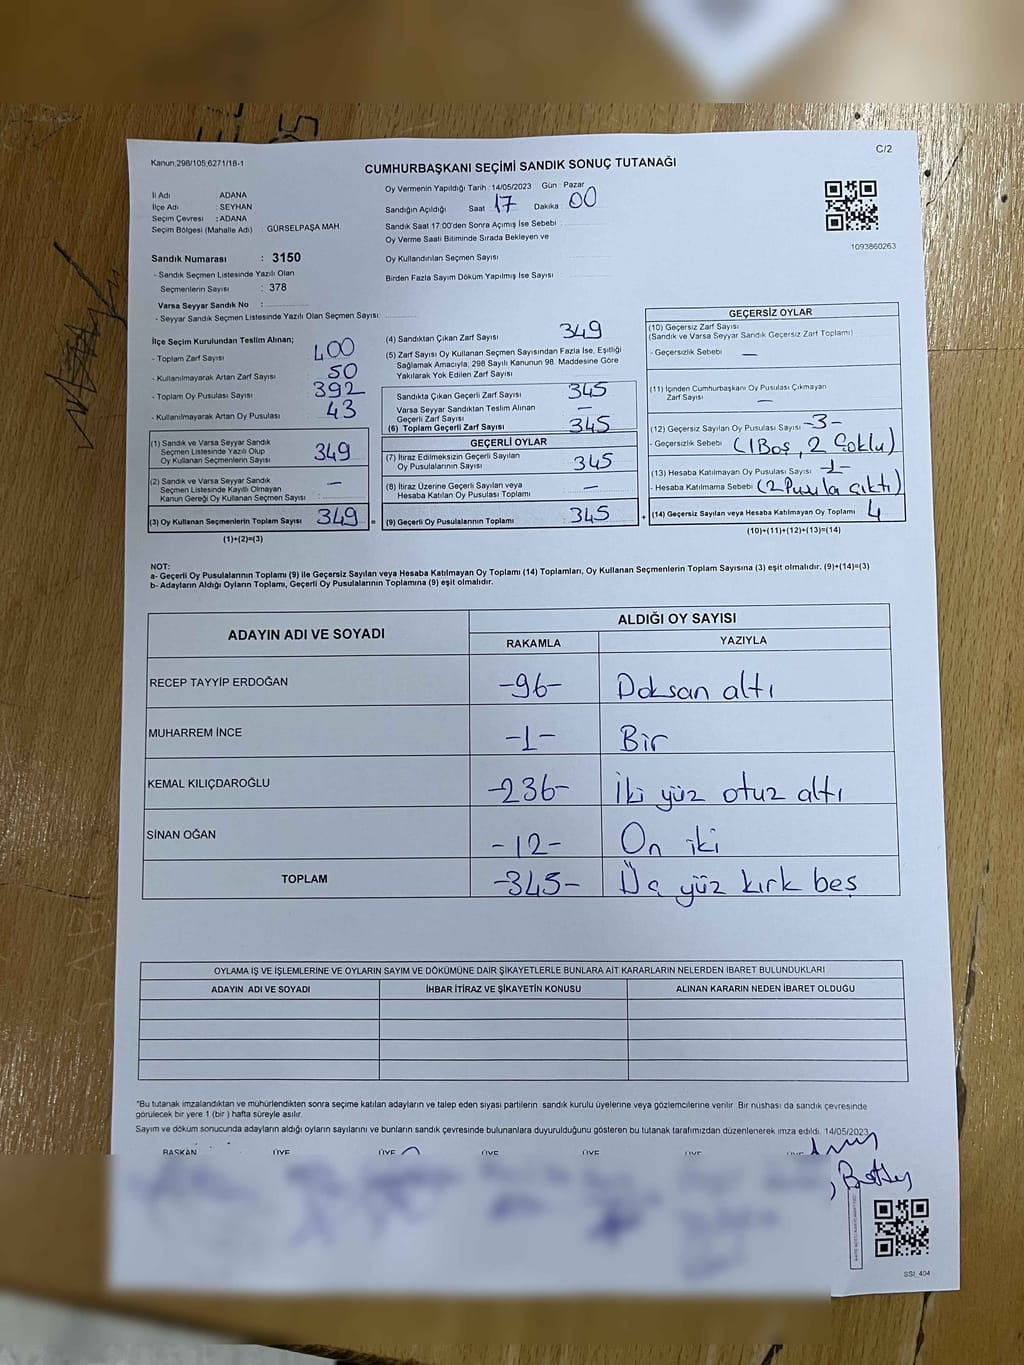 Kanun;298/105;6271/18-1
C/2
CUMHURBAŞKANI SEÇİMİ SANDIK SONUÇ TUTANAĞI
İl Adı ADANA
İlçe Adı : SEYHAN
Seçim Çevresi : ADANA
Seçim Bölgesi (Mahalle Adı) GÜRSELPAŞA MAH.
Sandık Numarası : 3150
- Sandık Seçmen Listesinde Yazılı Olan
Seçmenlerin Sayısı : 378
Varsa Seyyar Sandık No :
- Seyyar Sandık Seçmen Listesinde Yazılı Olan Seçmen Sayısı:
Oy Vermenin Yapıldığı Tarih : 14/05/2023 Gün : Pazar
Sandığın Açıldığı Saat 17 Dakika 00
Sandık Saat 17:00'den Sonra Açımış İse Sebebi
Oy Verme Saati Bitiminde Sırada Bekleyen ve
Oy Kullandırılan Seçmen Sayısı
Birden Fazla Sayım Döküm Yapılmış İse Sayısı
1093860263
İlçe Seçim Kurulundan Teslim Alınan;
- Toplam Zarf Sayısı 400
- Kullanılmayarak Artan Zarf Sayısı 50
- Toplam Oy Pusulası Sayısı 392
- Kullanılmayarak Artan Oy Pusulası 43
(1) Sandık ve Varsa Seyyar Sandık
Seçmen Listesinde Yazılı Olup
Oy Kullanan Seçmenlerin Sayısı 349
(2) Sandık ve Varsa Seyyar Sandık
Seçmen Listesinde Kayıtlı Olmayan
Kanun Gereği Oy Kullanan Seçmen Sayısı : –
(3) Oy Kullanan Seçmenlerin Toplam Sayısı 349 =
(1)+(2)=(3)
(4) Sandıktan Çıkan Zarf Sayısı 349
(5) Zarf Sayısı Oy Kullanan Seçmen Sayısından Fazla İse, Eşitliği
Sağlamak Amacıyla, 298 Sayılı Kanunun 98. Maddesine Göre
Yakılarak Yok Edilen Zarf Sayısı
Sandıkta Çıkan Geçerli Zarf Sayısı 345
Varsa Seyyar Sandıktan Teslim Alınan
Geçerli Zarf Sayısı –
(6) Toplam Geçerli Zarf Sayısı 345
GEÇERLİ OYLAR
(7) İtiraz Edilmeksizin Geçerli Sayılan
Oy Pusulalarının Sayısı 345
(8) İtiraz Üzerine Geçerli Sayılan veya
Hesaba Katılan Oy Pusulası Toplamı –
(9) Geçerli Oy Pusulalarının Toplamı 345 +
GEÇERSİZ OYLAR
(10) Geçersiz Zarf Sayısı
(Sandık ve Varsa Seyyar Sandık Geçersiz Zarf Toplamı)
- Geçersizlik Sebebi –
(11) İçinden Cumhurbaşkanı Oy Pusulası Çıkmayan
Zarf Sayısı –
(12) Geçersiz Sayılan Oy Pusulası Sayısı -3-
- Geçersizlik Sebebi (1 Boş, 2 Çoklu)
(13) Hesaba Katılmayan Oy Pusulası Sayısı -1-
- Hesaba Katılmama Sebebi (2 Pusula çıktı)
(14) Geçersiz Sayılan veya Hesaba Katılmayan Oy Toplamı 4
(10)+(11)+(12)+(13)=(14)
NOT:
a- Geçerli Oy Pusulalarının Toplamı (9) ile Geçersiz Sayılan veya Hesaba Katılmayan Oy Toplamı (14) Toplamları, Oy Kullanan Seçmenlerin Toplam Sayısına (3) eşit olmalıdır. (9)+(14)=(3)
b- Adayların Aldığı Oyların Toplamı, Geçerli Oy Pusulalarının Toplamına (9) eşit olmalıdır.
ADAYIN ADI VE SOYADI ALDIĞI OY SAYISI
RAKAMLA YAZIYLA
RECEP TAYYİP ERDOĞAN -96- Doksan altı
MUHARREM İNCE -1- Bir
KEMAL KILIÇDAROĞLU -236- İki yüz otuz altı
SİNAN OĞAN -12- On iki
TOPLAM -345- Üç yüz kırk beş
OYLAMA İŞ VE İŞLEMLERİNE VE OYLARIN SAYIM VE DÖKÜMÜNE DAİR ŞİKAYETLERLE BUNLARA AİT KARARLARIN NELERDEN İBARET BULUNDUKLARI
ADAYIN ADI VE SOYADI İHBAR İTİRAZ VE ŞİKAYETİN KONUSU ALINAN KARARIN NEDEN İBARET OLDUĞU
"Bu tutanak imzalandıktan ve mühürlendikten sonra seçime katılan adayların ve talep eden siyasi partilerin sandık kurulu üyelerine veya gözlemcilerine verilir. Bir nüshası da sandık çevresinde
görülecek bir yere 1 (bir ) hafta süreyle asılır.
Sayım ve döküm sonucunda adayların aldığı oyların sayılarını ve bunların sandık çevresinde bulunanlara duyurulduğunu gösteren bu tutanak tarafımızdan düzenlenerek imza edildi. 14/05/2023
BAŞKAN ÜYE ÜYE ÜYE ÜYE ÜYE ÜYE
SSI_404